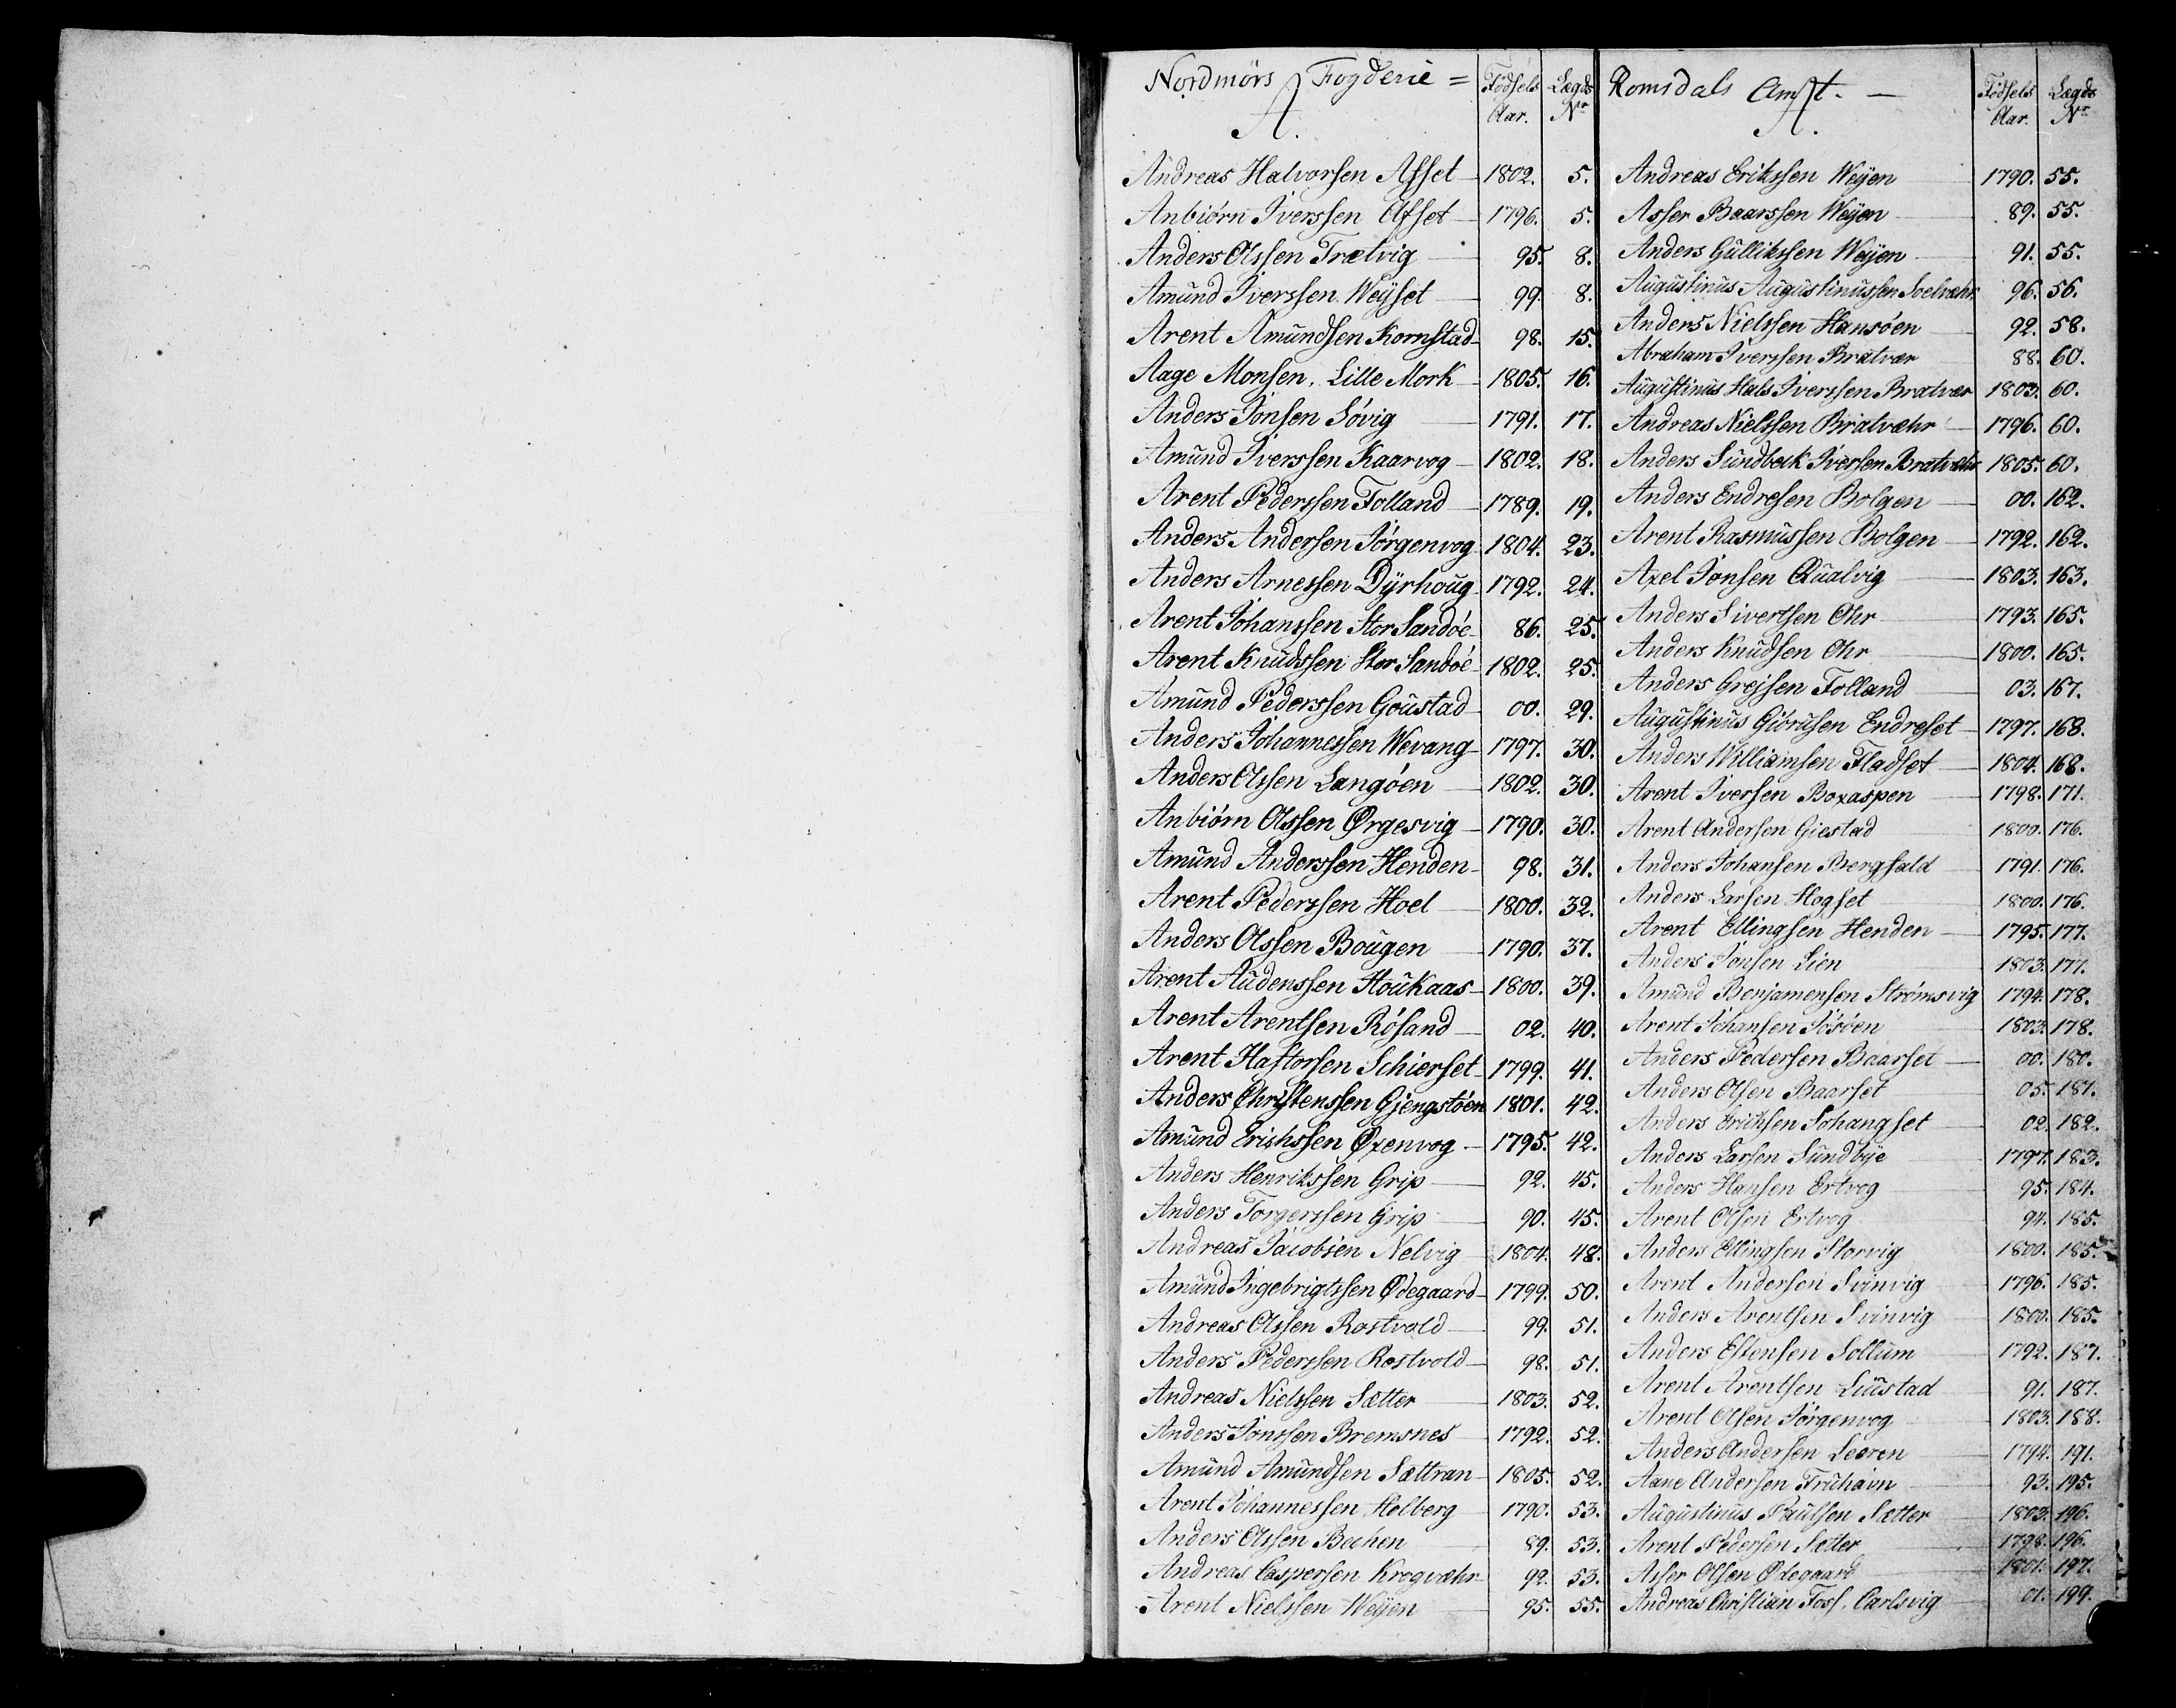 Nordmörs Fogderie =
A.
Födsels Aar.
Lægds Nr
Andreas Halvorsen Afset 1802. 5.
Anbiörn Iverssen Afset 1796. 5.
Anders Olssen Trætvig 95. 8.
Amund Iverssen Weyset 99. 8.
Arent Amundsen Kornstad 98. 15.
Aage Monsen, Lille Mork 1805. 16.
Anders Jonsen Lövig 1791. 17.
Amund Iverssen Kaarvog 1802. 18.
Arent Pederssen Folland 1789. 19.
Anders Andersen Jörgenvog 1804. 23.
Anders Arnessen Dyrhoug 1792. 24.
Arent Johanssen Stor Sandöe 86. 25.
Arent Knudssen Stor Sandöe 1802. 25.
Amund Pederssen Goustad 00. 29.
Anders Johannessen Wevang 1797. 30.
Anders Olssen Langöen 1802. 30.
Anbiörn Olssen Ørgesvig 1790. 30.
Amund Anderssen Henden 98. 31.
Arent Pederssen Hoel 1800. 32.
Anders Olssen Bougen 1790. 37.
Arent Audenssen Houkaas 1800. 39.
Arent Arentsen Rösand 02. 40.
Arent Hastorsen Schierset 1799. 41.
Anders Christenssen Gjengstöen 1801. 42.
Amund Erichssen Øxenvog 1795. 42.
Anders Henrikssen Grip 92. 45.
Anders Torgerssen Grip 90. 45.
Andreas Jacobsen Nelvig 1804. 48.
Amund Ingebrigtssen Ødegaard 1799. 50.
Andreas Olssen Rostvold 99. 51.
Anders Pederssen Rostvold 98. 51.
Andreas Nielssen Sætter 1803. 52.
Anders Jonssen Bremsnes 1792. 52.
Amund Amundsen Sættran 1805. 52.
Arent Johannessen Holberg 1790. 53.
Anders Olssen Bechen 89. 53.
Andreas Caspersen Krogvæhr 92. 53.
Arent Nielssen Weyen 95. 55.
Romsdals Amst. —
A.
Födsels Aar.
Lægds Nr
Andreas Erikssen Weyen 1790. 55.
Asser Baarssen Weyen 89. 55.
Anders Gullikssen Weyen 91. 55.
Augustinus Augustinussen Soelvæhr 96. 56.
Anders Nielssen Hansöen 92. 58.
Abraham Iverssen Bratvær 88. 60.
Augustinus Hals Iverssen Bratvær 1803. 60.
Andreas Nielssen Bratvæhr 1796. 60.
Anders Sundbeck Iversen Bratvæhr 1805. 60.
Anders Endresen Bolgen 00. 162.
Arent Rasmussen Bolgen 1792. 162.
Axel Jonsen Qualvig 1803. 163.
Anders Sivertsen Ohr 1793. 165.
Anders Knudsen Ohr 1800. 165.
Anders Grejsen Folland 03. 167.
Augustinus Giörusen Endreset 1797. 168.
Anders Williamsen Fladset 1804. 168.
Arent Iversen Boxaspen 1798. 171.
Arent Andersen Giestad 1800. 176.
Anders Johansen Bergsald 1791. 176.
Anders Larsen Hogset 1800. 176.
Arent Ellingsen Henden 1795. 177.
Anders Jonsen Lien 1803. 177.
Amund Benjamensen Strömsvig 1794. 178.
Arent Johansen Jösöen 1803. 178.
Anders Pedersen Baarset 00. 180.
Anders Olsen Baarset 05. 181.
Anders Erichsen Sohangset 02. 182.
Anders Larsen Sundbye 1797. 183.
Anders Hansen Ertvog 95. 184.
Arent Olsen Ertvog 94. 185.
Anders Ellingsen Storvig 1800. 185.
Arent Andersen Svinvig 1796. 185.
Anders Arentsen Svinvig 1800. 185.
Anders Estensen Sollum 1792. 187.
Arent Arentsen Liustad 91. 187.
Arent Olsen Jörgenvog 1803. 188.
Anders Andersen Leeren 1794. 191.
Aane Andersen Fruhavn 93. 195.
Augustinus Paulsen Sætter 1803. 196.
Arent Pedersen Sætter 1798. 196.
Asser Olsen Ødegaard 1801. 197.
Andreas Christian Foss, Carlsvig 01. 199.